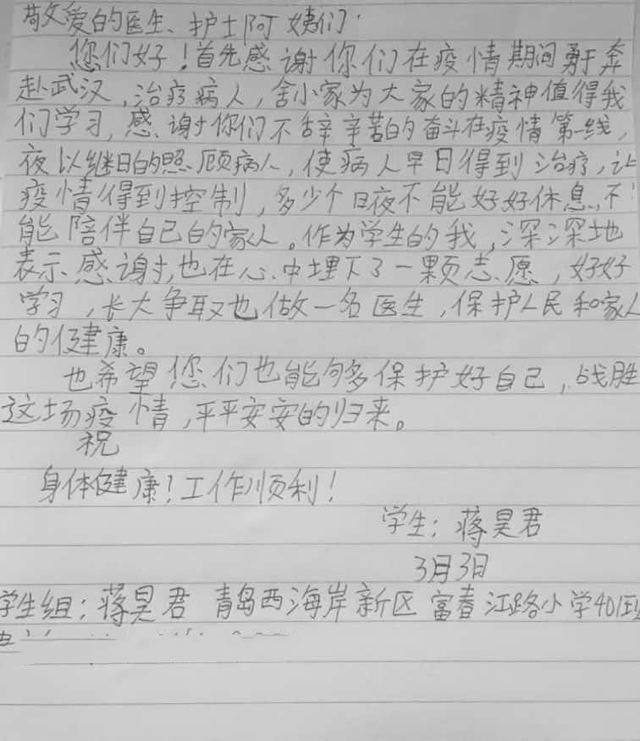 敬爱的医生、护士阿姨们：
您们好！首先感谢你们在疫情期间勇于奔
赴武汉，治疗病人，舍小家为大家的精神值得我
们学习，感谢你们不辞辛苦的奋斗在疫情第一线，
夜以继日的照顾病人，使病人早日得到治疗，让
疫情得到控制，多少个日夜不能好好休息，不
能陪伴自己的家人。作为学生的我，深深地
表示感谢，也在心中埋下了一颗志愿，好好
学习，长大争取也做一名医生，保护人民和家人
的健康。
也希望您们也能够多保护好自己，战胜
这场疫情，平平安安的归来。
祝
身体健康！工作顺利！
学生：蒋昊君
3月3日
学生组：蒋昊君 青岛西海岸新区富春江路小学401班